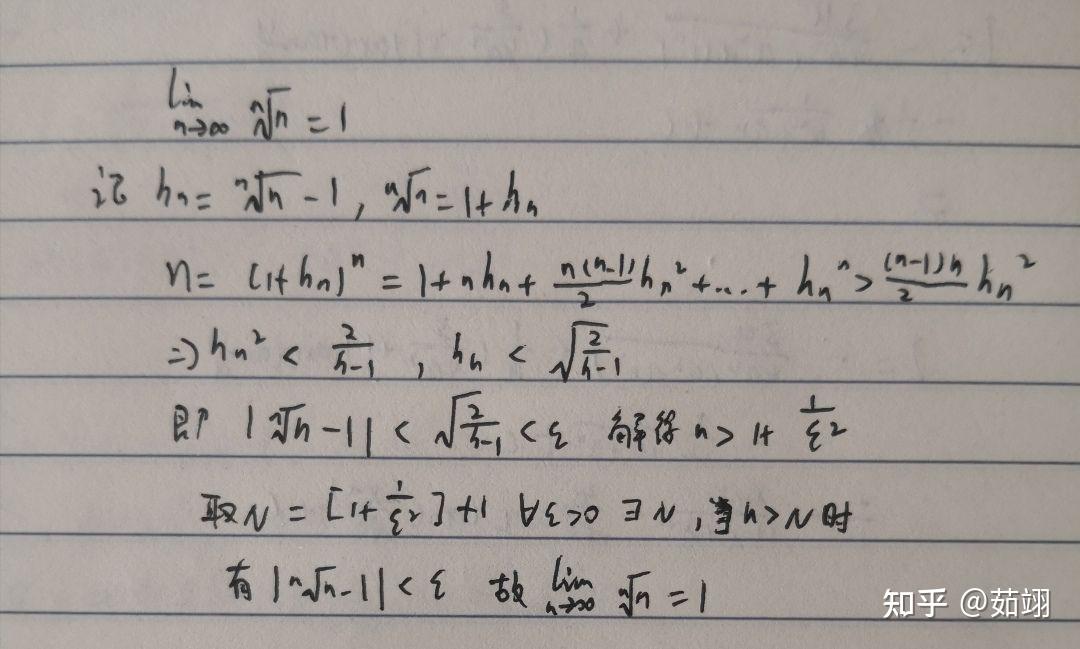 lim_{n→∞} ⁿ√n = 1
记 hₙ = ⁿ√n - 1, ⁿ√n = 1 + hₙ
n = (1+hₙ)ⁿ = 1 + nhₙ + \frac{n(n-1)}{2} hₙ² + ... + hₙⁿ > \frac{(n-1)n}{2} hₙ²
⇒ hₙ² < \frac{2}{n-1} , hₙ < \sqrt{\frac{2}{n-1}}
即 |ⁿ√n - 1| < \sqrt{\frac{2}{n-1}} < ε 解得 n > 1 + \frac{1}{ε²}
取 N = [1 + \frac{1}{ε²}] + 1 ∀ε>0 ∃N , 当 n>N 时
有 |ⁿ√n - 1| < ε 故 lim_{n→∞} ⁿ√n = 1
知乎 @茹翊